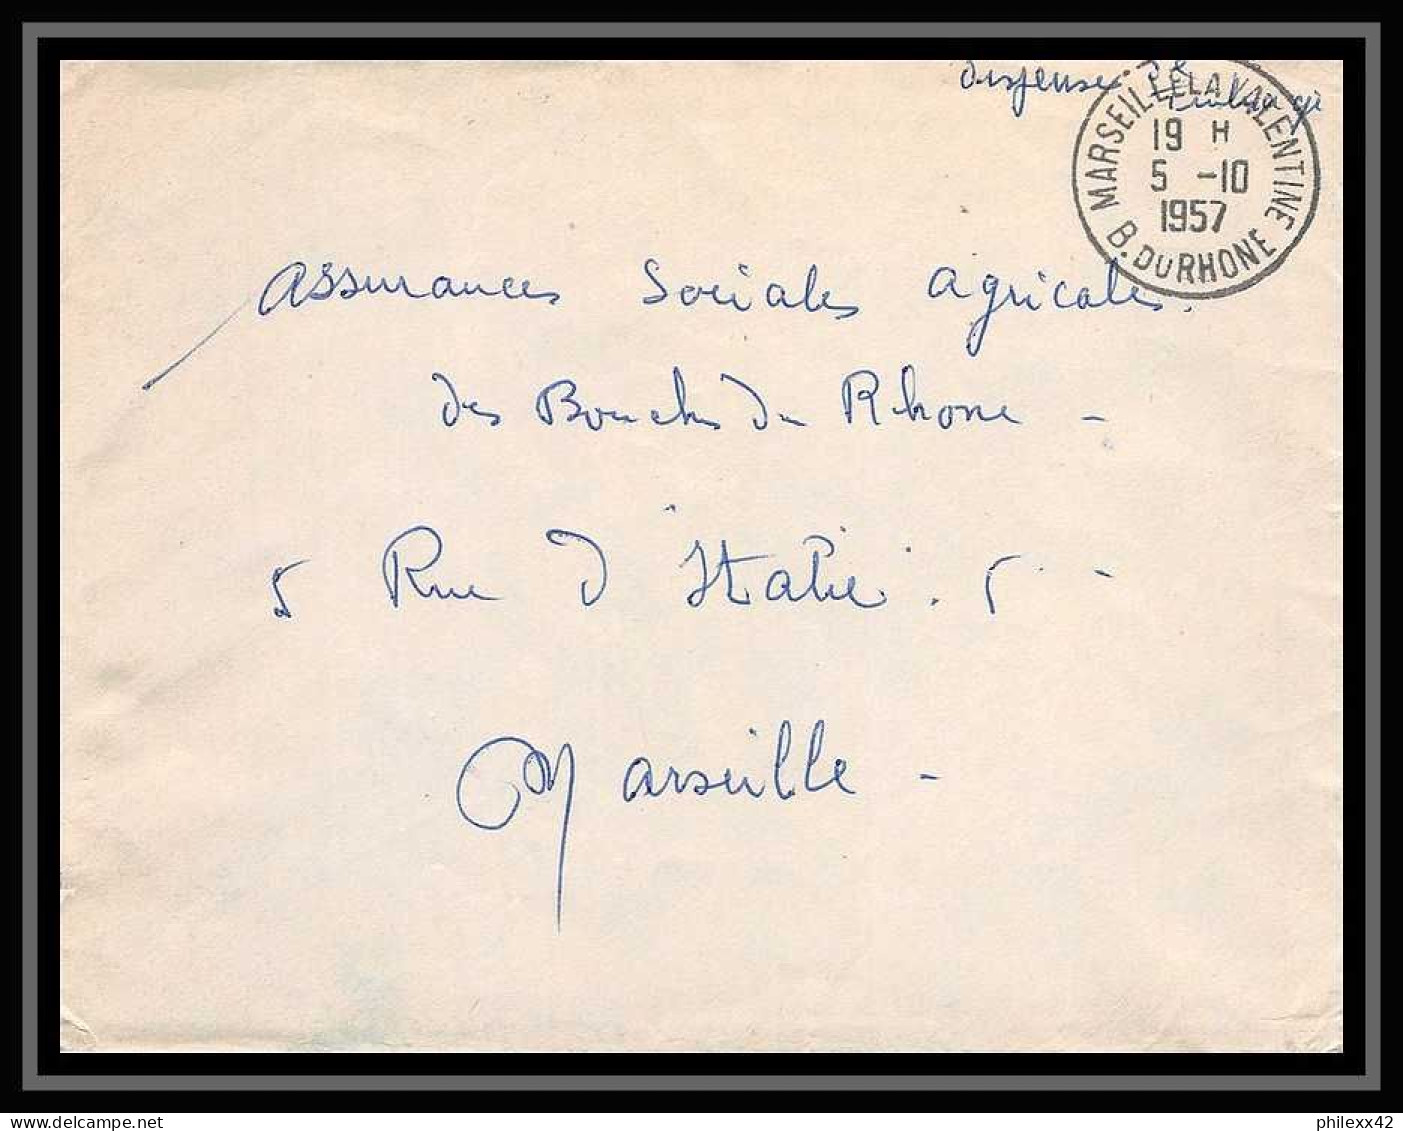 Dispensé de
timbrage
MARSEILLE LA VALENTINE
19 H
5 -10
1957
B. DU RHONE
Assurances Sociales Agricoles.
des Bouches du Rhone -
5 Rue d'Italie. 5 -
Marseille -
philexx42